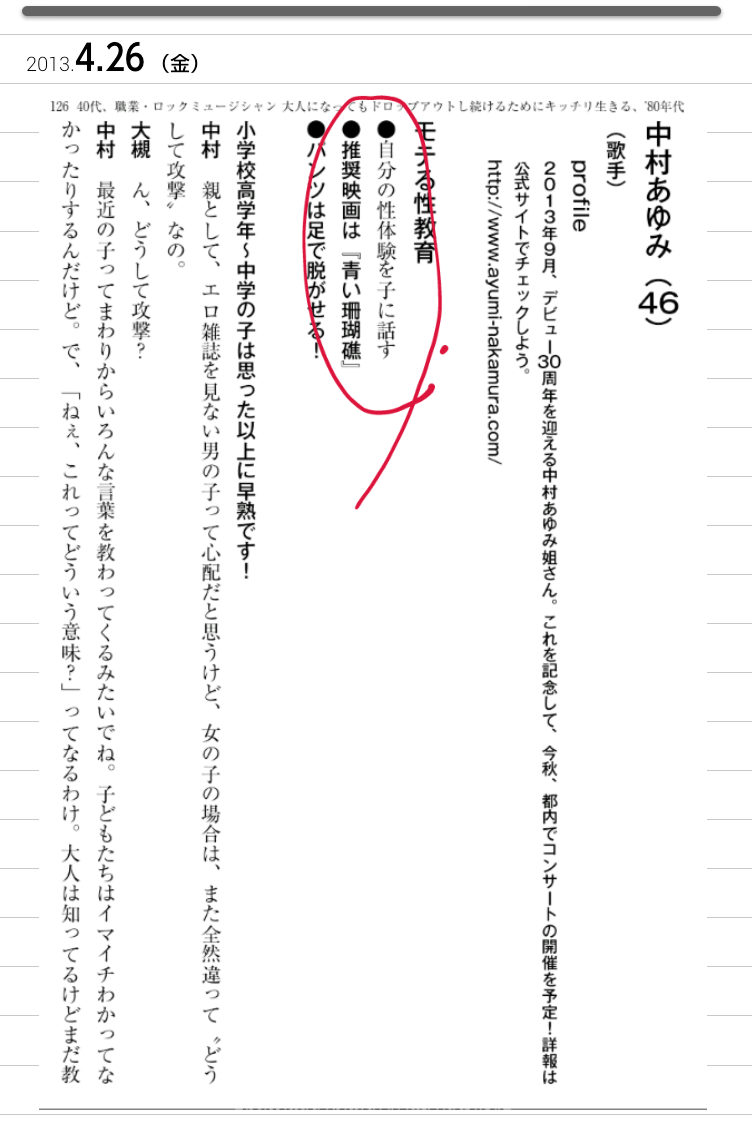 2013.4.26（金）
126 40代、職業・ロックミュージシャン 大人になってもドロップアウトし続けるためにキッチリ生きる、'80年代
中村あゆみ（46）
（歌手）
profile
２０１３年９月、デビュー30周年を迎える中村あゆみ姐さん。これを記念して、今秋、都内でコンサートの開催を予定！詳報は
公式サイトでチェックしよう。
http://www.ayumi-nakamura.com/
モテる性教育
●自分の性体験を子に話す
●推奨映画は『青い珊瑚礁』
●パンツは足で脱がせる！
小学校高学年～中学の子は思った以上に早熟です！
中村　親として、エロ雑誌を見ない男の子って心配だと思うけど、女の子の場合は、また全然違って〝どう
して攻撃〟なの。
大槻　ん、どうして攻撃？
中村　最近の子ってまわりからいろんな言葉を教わってくるみたいでね。子どもたちはイマイチわかってな
かったりするんだけど。で、「ねぇ、これってどういう意味？」ってなるわけ。大人は知ってるけどまだ教